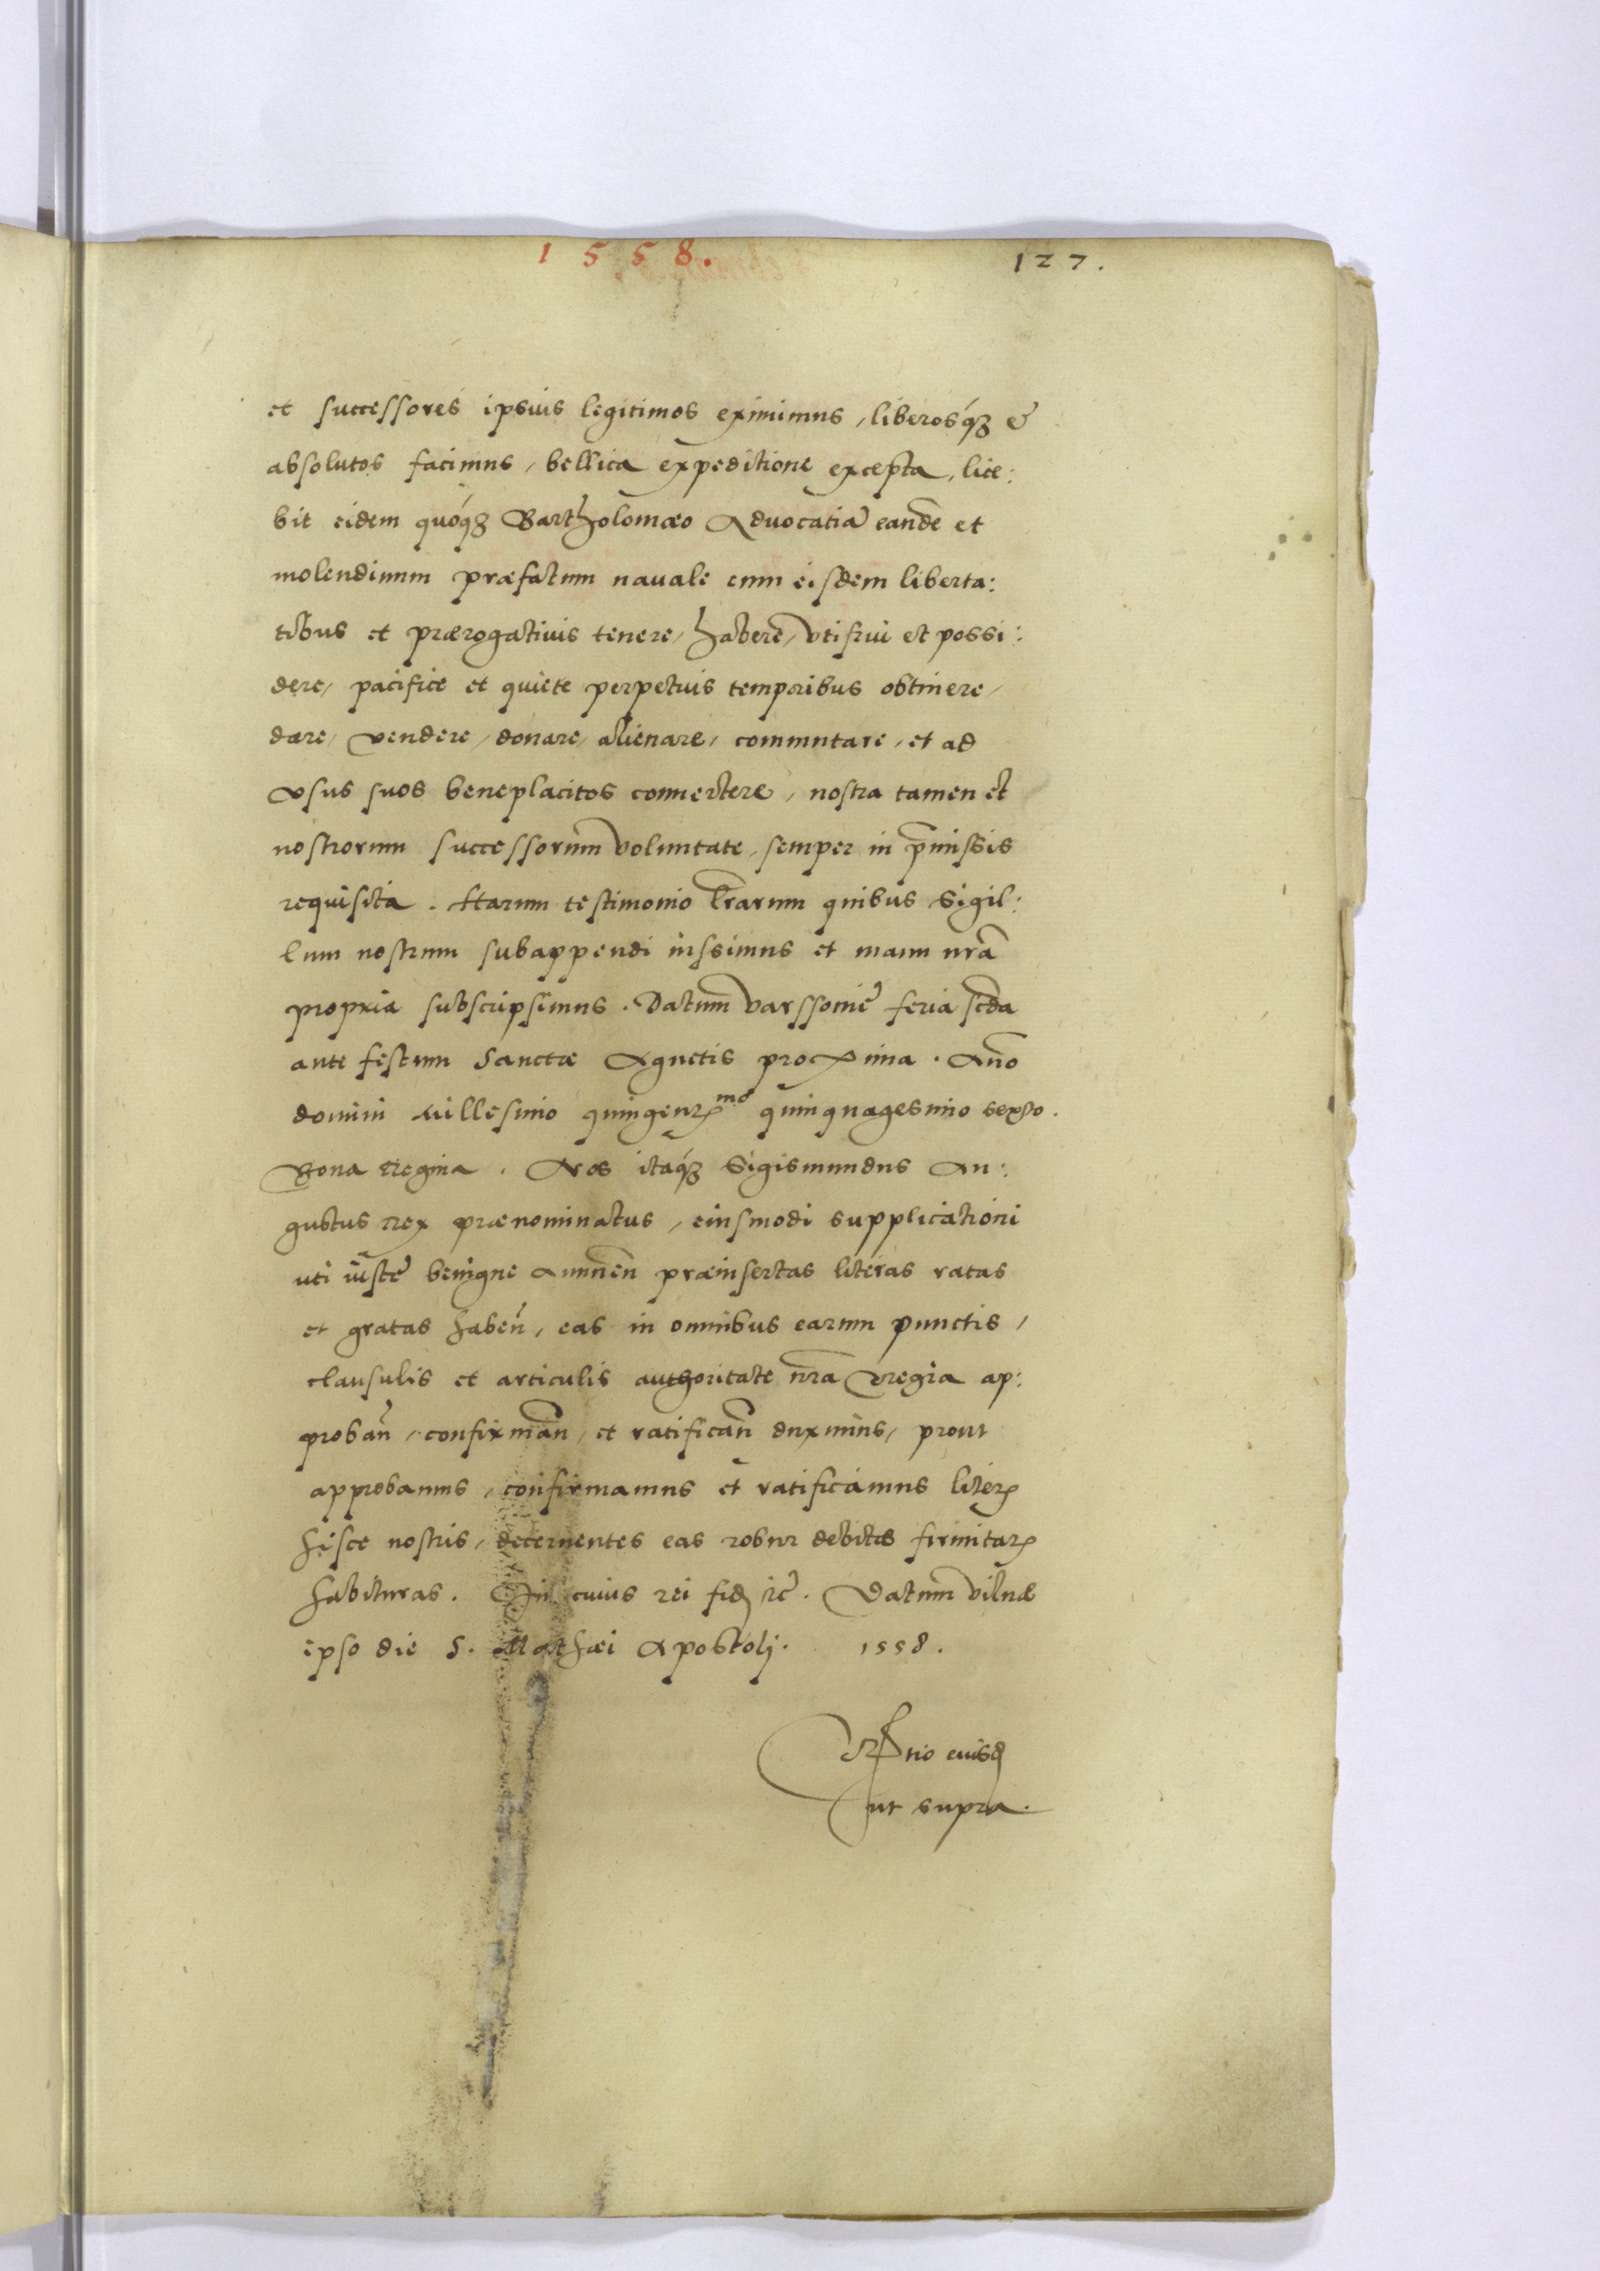 1558.
127.
et successores ipsius legitimos eximimus, liberosq́ꝫ &
absolutos facimus, bellica expeditione excepta, lice:
bit eidem quóqꝫ Bartholomæo Aduocatiā eandē et
molendinum præfatum nauale cum eisdem liberta:
tibus et prærogatiuis tenere, habere, vtifrui et possi:
dere, pacifice et quiete perpetuis temporibus obtinere,
dare, vendere, donare, alienare, commutare, et ad
vsus suos beneplacitos conuertere, nostra tamen et
nostrorum successorum voluntate, semper in p̄missis
requisita. Harum testimonio l̄rarum quibus Sigil:
lum nostrum subappendi iussimus et manu nrā
propria subscripsimus. Datum varssouię feria scđa
ante festum Sanctæ Agnetis proxima. Anō
domini Millesimo quingenꝭmo quinquagesimo sexto.
Bona Regina. Nos itaq́ꝫ Sigismundus Au:
gustus Rex prænominatus, eiusmodi supplicationi
uti iustę benigne annuen̄ præinsertas literas ratas
et gratas haben̄, eas in omnibus earum punctis,
clausulis et articulis authoritate nr̄a regia ap:
proban̄, confirman̄, et ratifican̄ duximus, prout
approbamus, confirmamus et ratificamus literꝭ
hisce nostris, decernentes eas robur debitæ firmitatꝭ
habituras. In cuius rei fidē ꝛc̄. Datum vilnæ
ipso die S. Mathæi Apostolj. 1558.
eiusđ
ut supra.